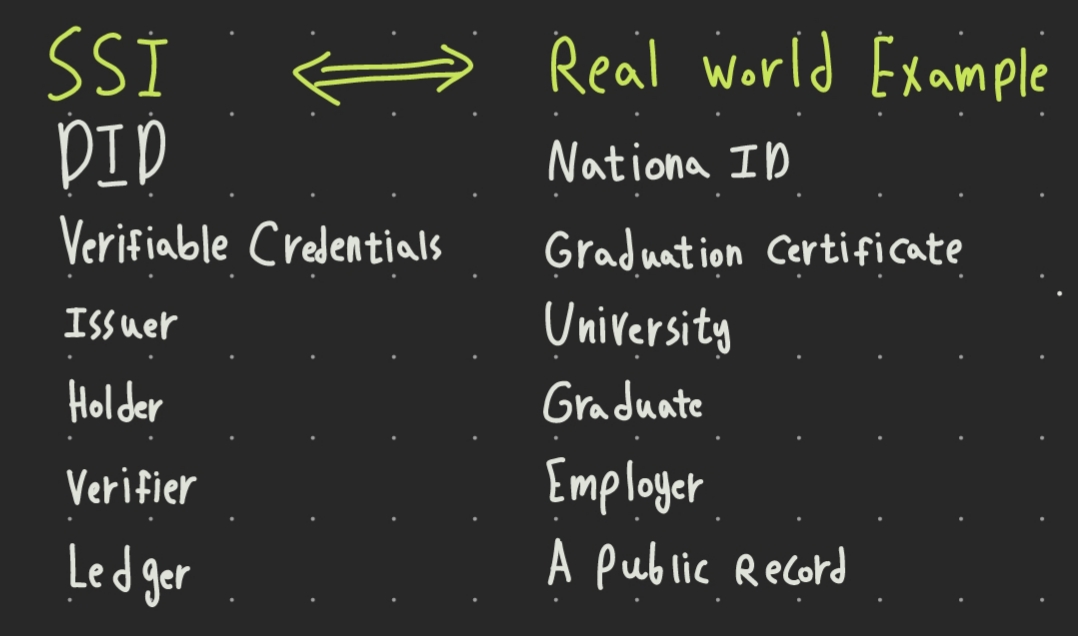 SSI ⟺ Real world Example
DID Nationa ID
Verifiable Credentials Graduation certificate
Issuer University
Holder Graduate
Verifier Employer
Ledger A Public Record